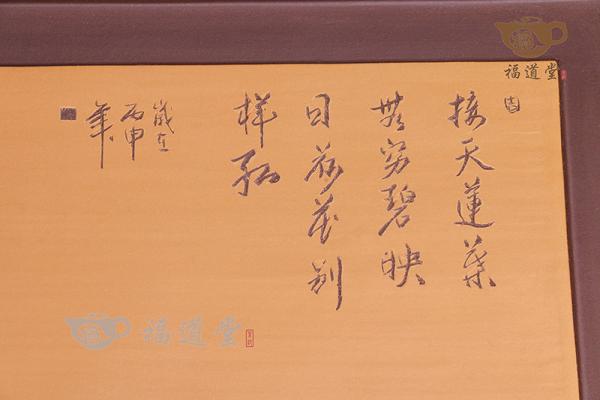 接天蓮葉
無穷碧映
日荷花别
样红
歲在
丙申
年
福道堂
福道堂